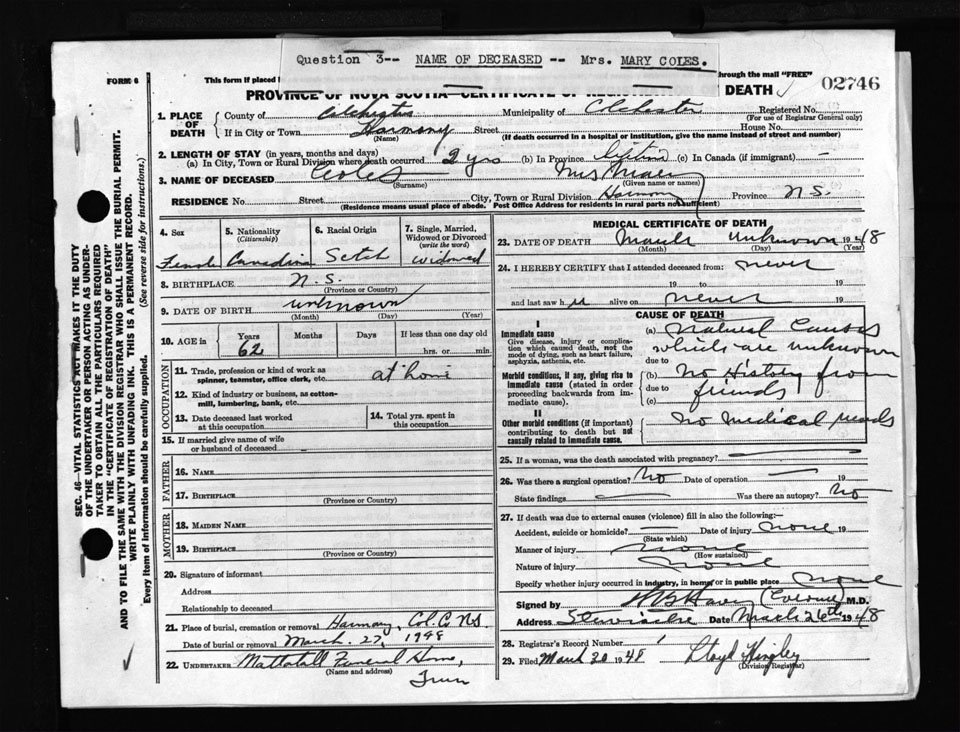 Question 3-- NAME OF DECEASED -- Mrs. MARY COLES.
FORM 6
This form if placed
through the mail "FREE"
02746
PROVINCE OF NOVA SCOTIA—CERTIFICATE OF REGISTRATION OF DEATH
1. PLACE OF DEATH
County of Colchester Municipality of Colchester Registered No.
(For use of Registrar General only)
If in City or Town Harmony Street House No.
(Name) (If death occurred in a hospital or institution, give the name instead of street and number)
2. LENGTH OF STAY (in years, months and days)
(a) In City, Town or Rural Division where death occurred 2 yrs (b) In Province (c) In Canada (if immigrant) —
3. NAME OF DECEASED Coles Mrs Mary
(Surname) (Given name or names)
RESIDENCE No. Street City, Town or Rural Division Harmony Province N.S.
(Residence means usual place of abode. Post Office Address for residents in rural parts not sufficient)
4. Sex Female
5. Nationality (Citizenship) Canadian
6. Racial Origin Scotch
7. Single, Married, Widowed or Divorced (write the word) widowed
8. BIRTHPLACE N.S.
(Province or Country)
9. DATE OF BIRTH unknown
(Month) (Day) (Year)
10. AGE in Years 62 Months Days If less than one day old
hrs. or min
OCCUPATION
11. Trade, profession or kind of work as spinner, teamster, office clerk, etc. at home
12. Kind of industry or business, as cotton-mill, lumbering, bank, etc.
13. Date deceased last worked at this occupation
14. Total yrs. spent in this occupation
15. If married give name of wife or husband of deceased
FATHER
16. NAME
17. BIRTHPLACE
(Province or Country)
MOTHER
18. MAIDEN NAME
19. BIRTHPLACE
(Province or Country)
20. Signature of informant
Address
Relationship to deceased
21. Place of burial, cremation or removal Harmony, Col. Co. N.S.
Date of burial or removal March. 27, 1948
22. UNDERTAKER Mattatall Funeral Home,
(Name and address) Truro
MEDICAL CERTIFICATE OF DEATH
23. DATE OF DEATH March unknown 1948
(Month) (Day) (Year)
24. I HEREBY CERTIFY that I attended deceased from: never
19 to 19
and last saw h alive on never 19
CAUSE OF DEATH
I
Immediate cause
Give disease, injury or complication which caused death, not the mode of dying, such as heart failure, asphyxia, asthenia, etc.
(a) Natural Causes
which are unknown
due to
Morbid conditions, if any, giving rise to immediate cause (stated in order proceeding backwards from immediate cause).
(b) No History from
due to friends
(c)
II
Other morbid conditions (if important) contributing to death but not causally related to immediate cause.
No medical
25. If a woman, was the death associated with pregnancy? —
26. Was there a surgical operation? No Date of operation — 19
State findings — Was there an autopsy? No
27. If death was due to external causes (violence) fill in also the following:—
Accident, suicide or homicide? Date of injury none 19
(State which)
Manner of injury none
(How sustained)
Nature of injury none
Specify whether injury occurred in industry, in home or in public place none
Signed by (Coroner) M.D.
Address Stewiacke Date March 26th 1948
28. Registrar's Record Number 1
29. Filed March 30 1948 Lloyd
(Division Registrar)
SEC. 46—VITAL STATISTICS ACT MAKES IT THE DUTY
OF THE UNDERTAKER OR PERSON ACTING AS UNDERTAKER TO OBTAIN ALL THE PARTICULARS REQUIRED
IN THE "CERTIFICATE OF REGISTRATION OF DEATH"
AND TO FILE THE SAME WITH THE DIVISION REGISTRAR WHO SHALL ISSUE THE BURIAL PERMIT.
WRITE PLAINLY WITH UNFADING INK. THIS IS A PERMANENT RECORD.
Every item of information should be carefully supplied. (See reverse side for instructions.)